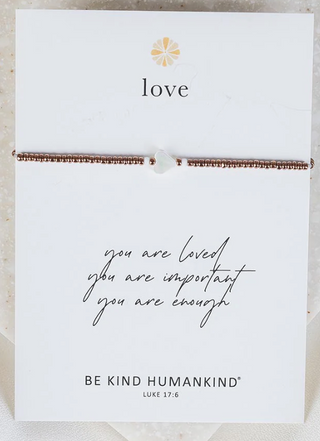 love
you are loved
you are important
you are enough
BE KIND HUMANKIND®
LUKE 17:6